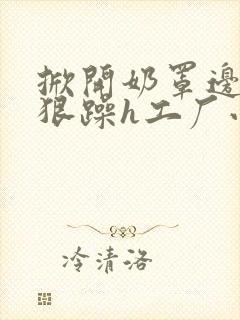 掀開奶罩邊
狠躁h工厂
冷清洛